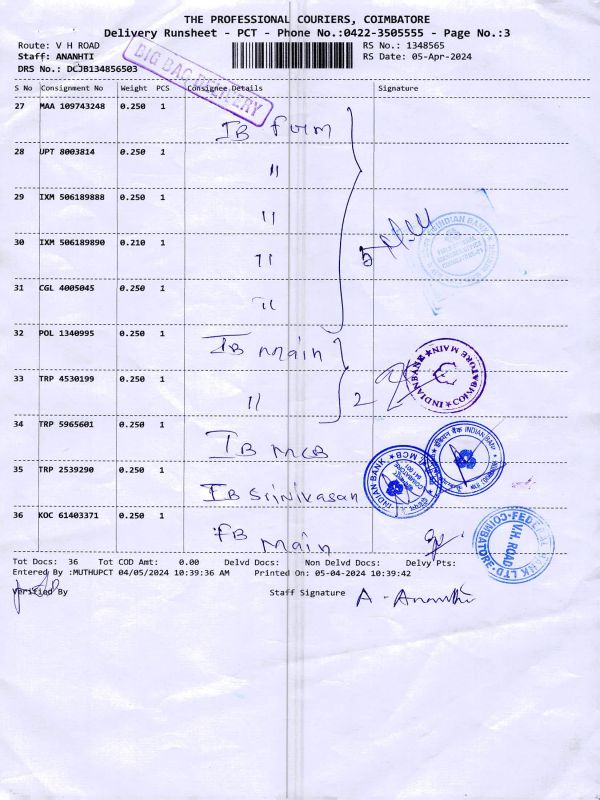 THE PROFESSIONAL COURIERS, COIMBATORE
Delivery Runsheet - PCT - Phone No.:0422-3505555 - Page No.:3
Route: V H ROAD RS No.: 1348565
Staff: ANANHTI RS Date: 05-Apr-2024
DRS No.: DCJB134856503
BIG BAG DELIVERY
S No Consignment No Weight PCS Consignee Details Signature
27 MAA 109743248 0.250 1
IB
28 UPT 8003814 0.250 1
"
29 IXM 506189888 0.250 1
"
30 IXM 506189890 0.210 1
" 5
INDIAN BANK
31 CGL 4005045 0.250 1
"
32 POL 1340995 0.250 1
IB Main
INDIAN BANK ★ COIMBATORE MAIN ★
33 TRP 4530199 0.250 1
" 2
34 TRP 5965601 0.250 1
IB MCB
इंडियन बैंक INDIAN BANK
35 TRP 2539290 0.250 1
IB Srinivasan
INDIAN BANK ★ MCB
COIMBATORE
36 KOC 61403371 0.250 1
FB Main
FEDERAL BANK LTD COIMBATORE
V.H. ROAD
Tot Docs: 36 Tot COD Amt: 0.00 Delvd Docs: Non Delvd Docs: Delvy Pts:
Entered By :MUTHUPCT 04/05/2024 10:39:36 AM Printed On: 05-04-2024 10:39:42
Verified By Staff Signature A. Ananthi